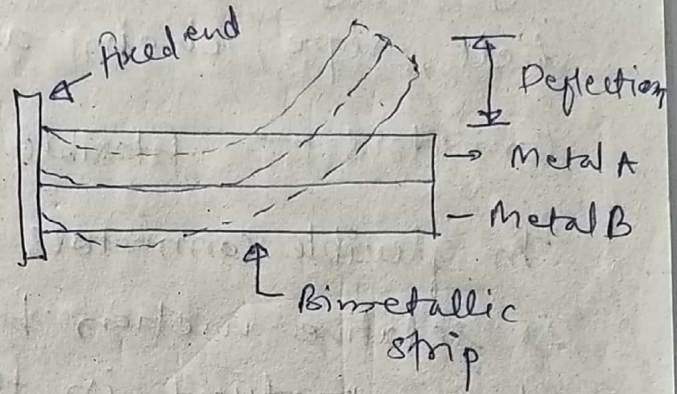 Fixed end
Deflection
Metal A
Metal B
Bimetallic
strip